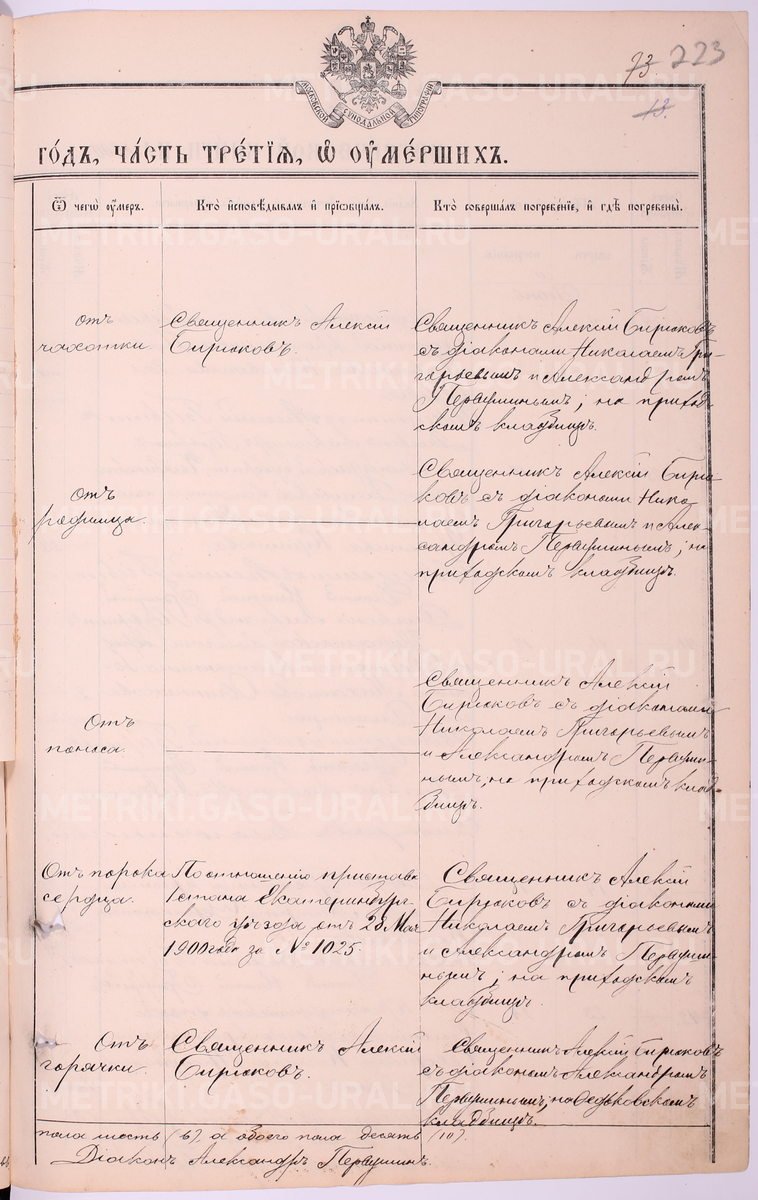 73 223
13.
МОСКОВСКОЙ СѴНОДАЛЬНОЙ ТИПОГРАФІИ
го́дъ, ча́сть тре́тїѧ, ѡ҆ ᲂу҆ме́ршихъ.
Ѿ чегѡ̀ ᲂу҆́меръ.
Кто̀ и҆сповѣ́дывалъ и҆ прїѡбща́лъ.
Кто̀ соверша́лъ погребе́нїе, и҆ гдѣ̀ погребены̀.
отъ
чахотки.
Священникъ Алексій
Бирюковъ.
Священникъ Алексій Бирюковъ
съ діаконами Николаемъ Гри-
горьевымъ и Александромъ
Первушинымъ; на приход-
скомъ кладбищѣ.
отъ
родимца.
Священникъ Алексій Бирю-
ковъ съ діаконами Нико-
лаемъ Григорьевымъ и Алек-
сандромъ Первушинымъ; на
приходскомъ кладбищѣ.
Отъ
поноса.
Священникъ Алексій
Бирюковъ съ діаконами
Николаемъ Григорьевымъ
и Александромъ Первуши-
нымъ, на приходскомъ клад-
бищѣ.
Отъ порока
сердца.
По отношенію пристава
1 стана Екатеринбург-
скаго уѣзда отъ 28 Мая
1900 года за № 1025.
Священникъ Алексій
Бирюковъ съ діаконами
Николаемъ Григорьевымъ
и Александромъ Первуши-
нымъ; на приходскомъ
кладбищѣ.
Отъ
горячки.
Священникъ Алексій
Бирюковъ.
Священникъ Алексій Бирюковъ
съ діакономъ Александромъ
Первушинымъ, на
кладбищѣ.
пола шесть (6), а обоего пола десять (10).
Діаконъ Александръ Первушинъ.
METRIKI.GASO-URAL.RU